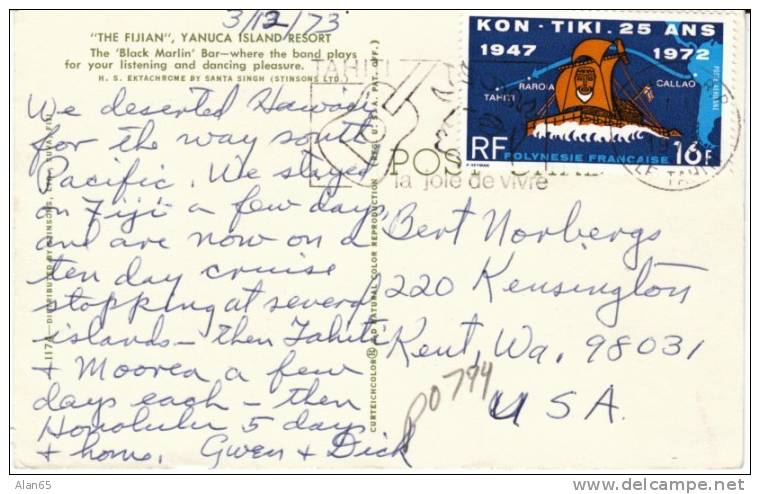 3/12/73
"THE FIJIAN", YANUCA ISLAND RESORT
The 'Black Marlin' Bar—where the band plays
for your listening and dancing pleasure.
H. S. EKTACHROME BY SANTA SINGH (STINSONS LTD.)
We deserted Hawaii
for the way south
Pacific. We stayed
on Fiji a few days,
and are now on a
ten day cruise
stopping at several
islands - then Tahiti
+ Moorea a few
days each - then
Honolulu 5 days
+ home. Gwen + Dick
KON-TIKI. 25 ANS
1947 1972
TAHITI RAROIA CALLAO
POSTE AERIENNE
RF 16F
POLYNESIE FRANCAISE
TAHITI
la joie de vivre
POST CARD
Bert Norbergs
220 Kensington
Kent, Wa. 98031
USA.
P0794
CURTEICHCOLOR ® 3-D NATURAL COLOR REPRODUCTION (REG. U.S.A. PAT. OFF.)
DISTRIBUTED BY STINSONS, LTD., SUVA, FIJI
Alan65
www.delcampe.net